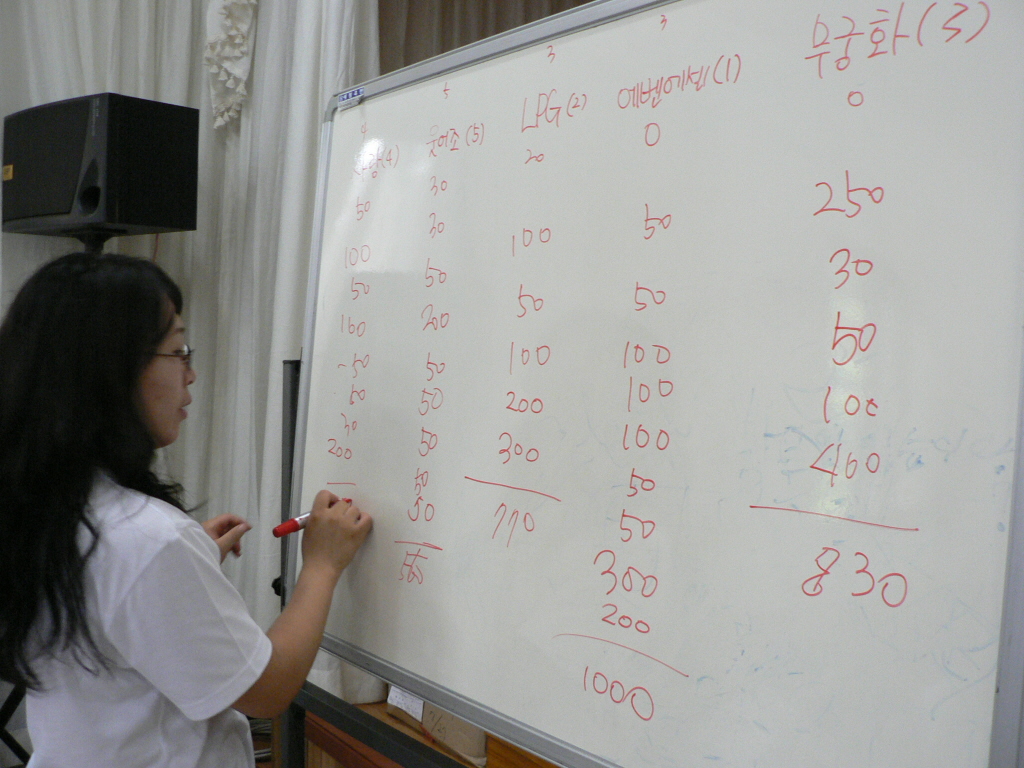 3
3
5
4
무궁화(3)
0
250
30
50
100
400
830
에벤에셀(1)
0
50
50
100
100
100
50
50
300
200
1000
LPG(2)
20
100
50
100
200
300
770
웃어조(5)
30
30
50
200
50
50
50
50
50
(4)
50
100
50
160
-50
50
30
200